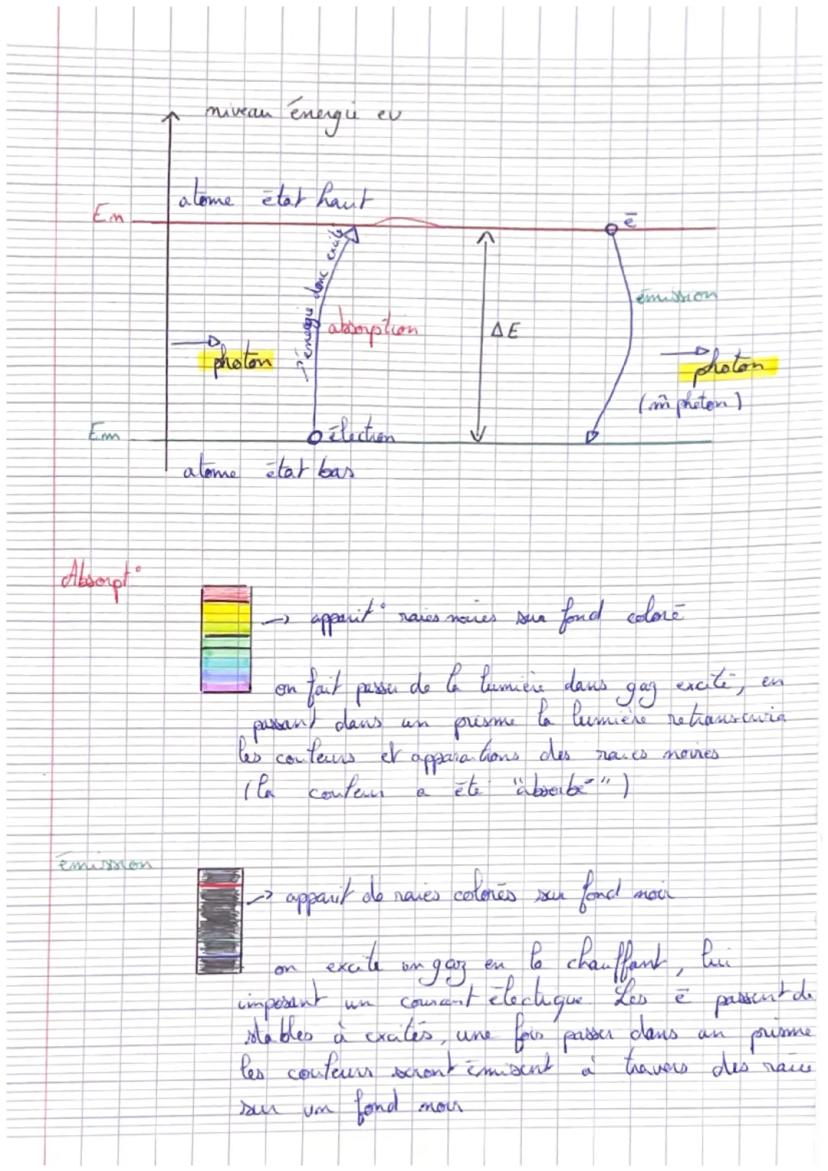 niveau énergie ev
atome état haut
En
ē
énergie donc excité
absorption
émission
ΔE
photon
photon
(m̂ photon)
Em
électron
atome état bas
Absorpt°
→ apparit° raies noires sur fond coloré
on fait passer de la lumière dans gaz excité, en
passant dans un prisme la lumière retranscrira
les couleurs et apparations des raies noires
(la couleur a été "absorbé")
émission
→ apparit de raies colorés sur fond noir
on excite un gaz en le chauffant, lui
imposant un courant électrique Les ē passent de
stables à excités, une fois passer dans un prisme
les couleurs seront émisent à travers des raies
sur un fond noir